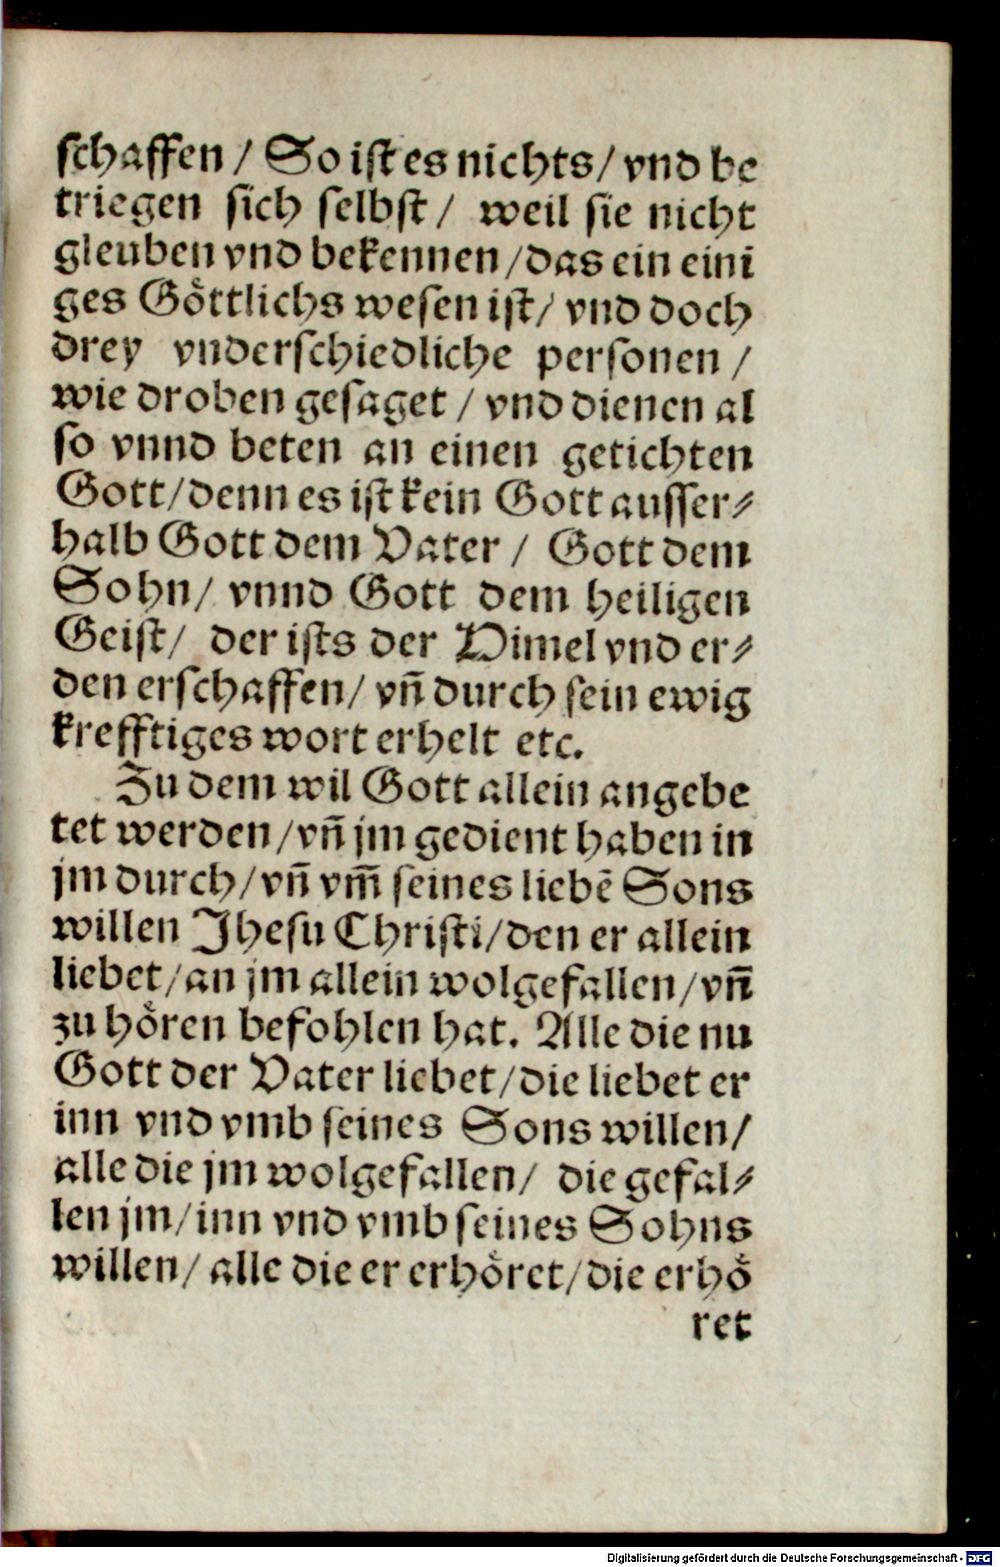 schaffen / So ist es nichts / vnd be
triegen sich selbst / weil sie nicht
gleuben vnd bekennen / das ein eini
ges Goͤttlichs wesen ist / vnd doch
drey vnderschiedliche personen /
wie droben gesaget / vnd dienen al
so vnnd beten an einen getichten
Gott / denn es ist kein Gott ausser⸗
halb Gott dem Vater / Gott dem
Sohn / vnnd Gott dem heiligen
Geist / der ists der Himel vnd er⸗
den erschaffen / vñ durch sein ewig
krefftiges wort erhelt etc.
Zu dem wil Gott allein angebe
tet werden / vñ jm gedient haben in
jm durch / vñ vm̃ seines liebẽ Sons
willen Jhesu Christi / den er allein
liebet / an jm allein wolgefallen / vñ
zu hoͤren befohlen hat. Alle die nu
Gott der Vater liebet / die liebet er
inn vnd vmb seines Sons willen /
alle die jm wolgefallen / die gefal⸗
len jm / inn vnd vmb seines Sohns
willen / alle die er erhoͤret / die erhoͤ
ret
Digitalisierung gefördert durch die Deutsche Forschungsgemeinschaft - DFG